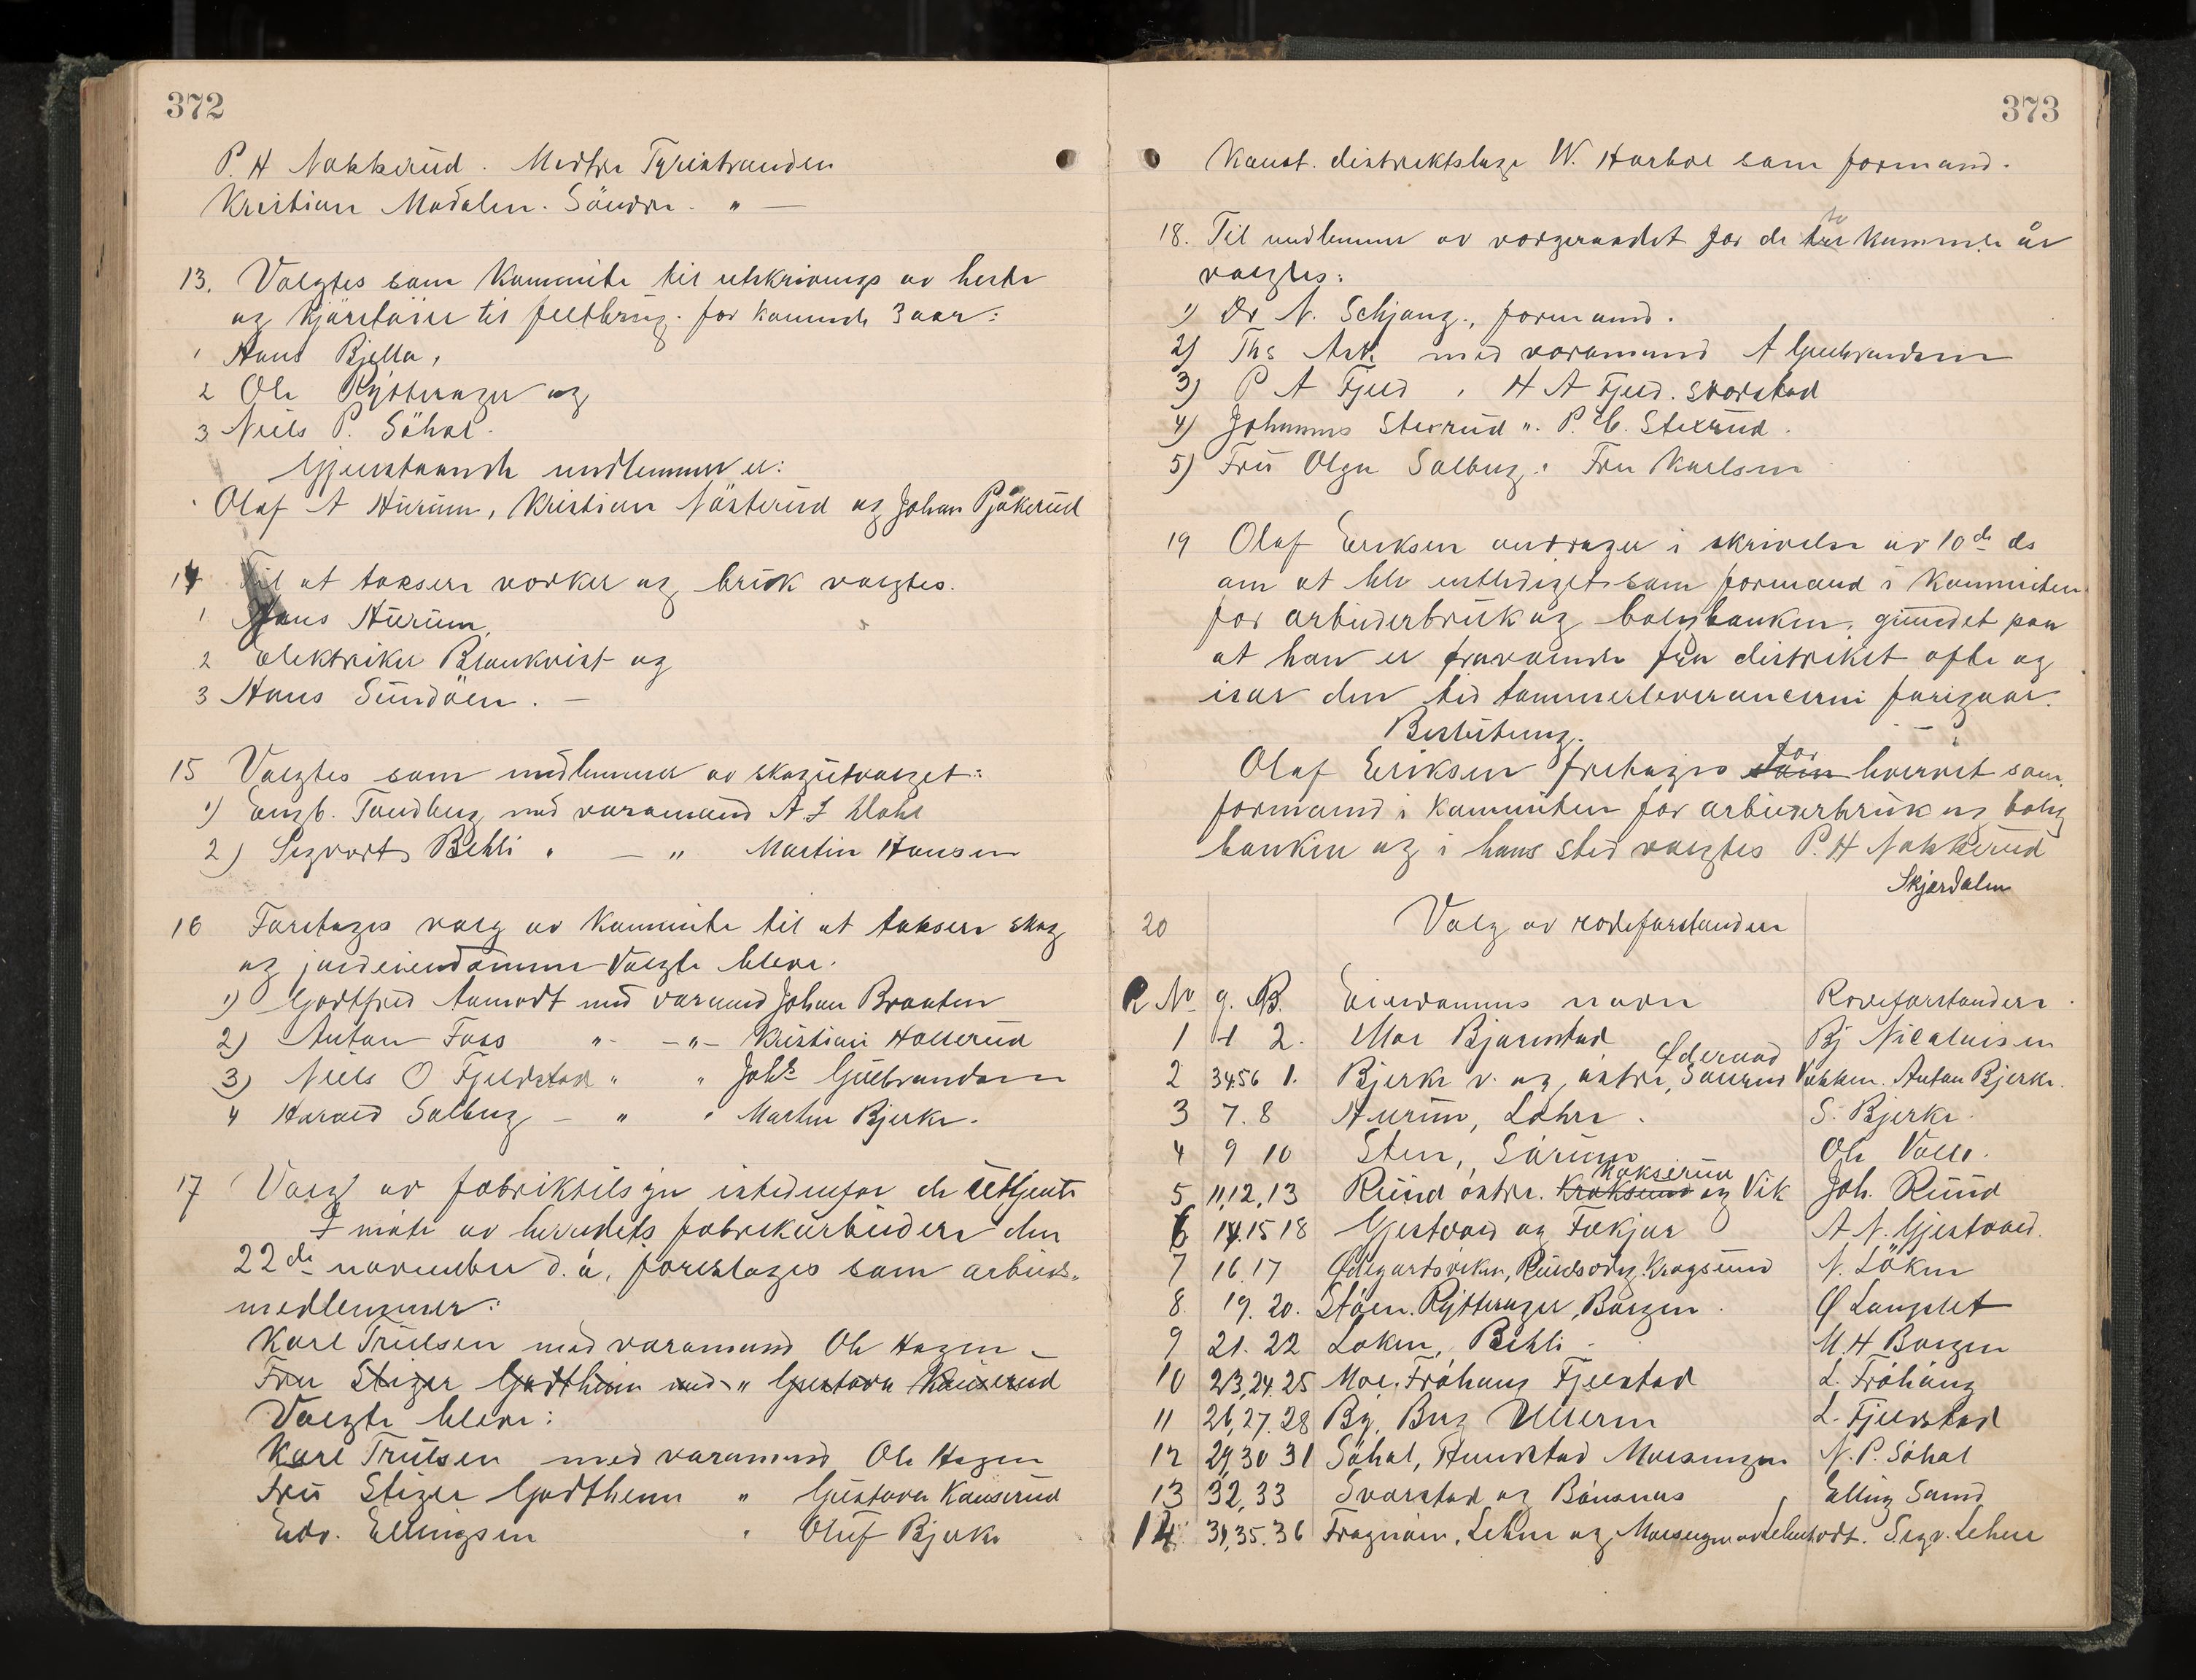 372
P. H Nakkerud. Midtre Tyristranden
Kristian Modalen. Söndre. " —
13. Valgtes som kommite til utskrivnings av heste
og kjöretöier til feltbrug. for kommende 3 aar:
1 Hans Bjella,
2 Ole Rytterager og
3 Niels P. Söhol.
Gjenstaaende medlemmer er:
Olaf A Hurum, Kristian Nästerud og Johan Pjåkerud
14 Til at taksere vorker og bruk valgtes.
1 Hans Hurum,
2 Elektriker Blankvist og
3 Hans Sundöen. —
15 Valgtes som medlemmer av skogutvalget:
1) Engb. Tandberg med varamand A J Dahl
2) Segvart Behli " — " Martin Hansen
16 Foretages valg av komite til at taksere skog
og jordeiendomme Valgte bleve.
1) Godtfred Aamodt med varamd Johan Braaten
2) Anton Foss " — " — Kristian Hollerud
3) Niels O Fjeldstad " " Johs Gulbrandsen
4 Harald Solberg — " " Martin Bjerke.
17 Valg av fabriktilsyn istedenfor de uttjente
I möte av herredets fabrikarbeidere den
22de november d. å. foreslages som arbeids-
medlemmer:
Karl Trulsen med varamand Ole Hagen —
Fru Stiger Godtheim med " Gustava Kauserud
Valgte bleve:
Karl Trulsen med varamand Ole Hagen
Fru Stiger Godtheim " Gustava Kauserud
Edv. Ellingsen " Oluf Bjerke
373
Konst. distriktslæge W. Harboe som formand.
18. Til medlemmer av vergeraadet for de to kommende år
valgtes:
1) Dr N. Schjang., formand.
2) Ths Ask med varamand A Gulbrandsen
3) P A Fjeld " H A Fjeld. svarstad
4) Johannes Stexrud ". P. C. Stexrud.
5) Fru Olga Solberg " Fru Karlsen
19 Olaf Eriksen andrager i skrivelse av 10de ds
om at bli entlediget som formand i kommiteen
for arbeiderbruk og boligbanken, grundet paa
at han er fraværende fra distriktet ofte og
især den tid tømmerleverancerne foregaar.
Beslutning.
Olaf Eriksen fritages som for hvervet som
formand i kommiteen for arbeiderbruk og bolig
banken og i hans sted valgtes P. H Nakkerud
Skjærdalen
20 Valg av rodeforstandere
R No g. B. Eiendommens navn Rodeforstandere
1 1 2. Moe Bjørnstad Bj Nicolaisen
2 3456 1. Bjerke v. og östre, Øderaad Saurud Vakken. Anton Bjerke.
3 7. 8 Hurum, Lohre. S. Bjerke.
4 9 10 Sten, Sörum Ole Vold.
5 11,12,13 Rund östre. Kroksund Kokserud og Vik Joh. Rund
6 14.15 18 Gjestvold og Fokjær A N. Gjestvold.
7 16.17 Ødegardsviken, Rundsødeg. Kragsund N. Löken
8. 19. 20. Stöen. Rytterager, Borgen. Ø Langslet
9 21. 22 Loken, Behli — M. H Borgen
10 23,24.25 Moe, Fröhaug Fjelstad L. Fröhaug
11 26,27.28 By, Berg Ullern L. Fjeldstad
12 29 30 31 Söhol, Hunstad Moesengen N. P. Söhol
13 32,33 Svarstad og Bönsnæs Elling Sand
14 34,35.36 Fragnäm, Lehne og Moesengen av Lehne hvdt. Segv. Lehne